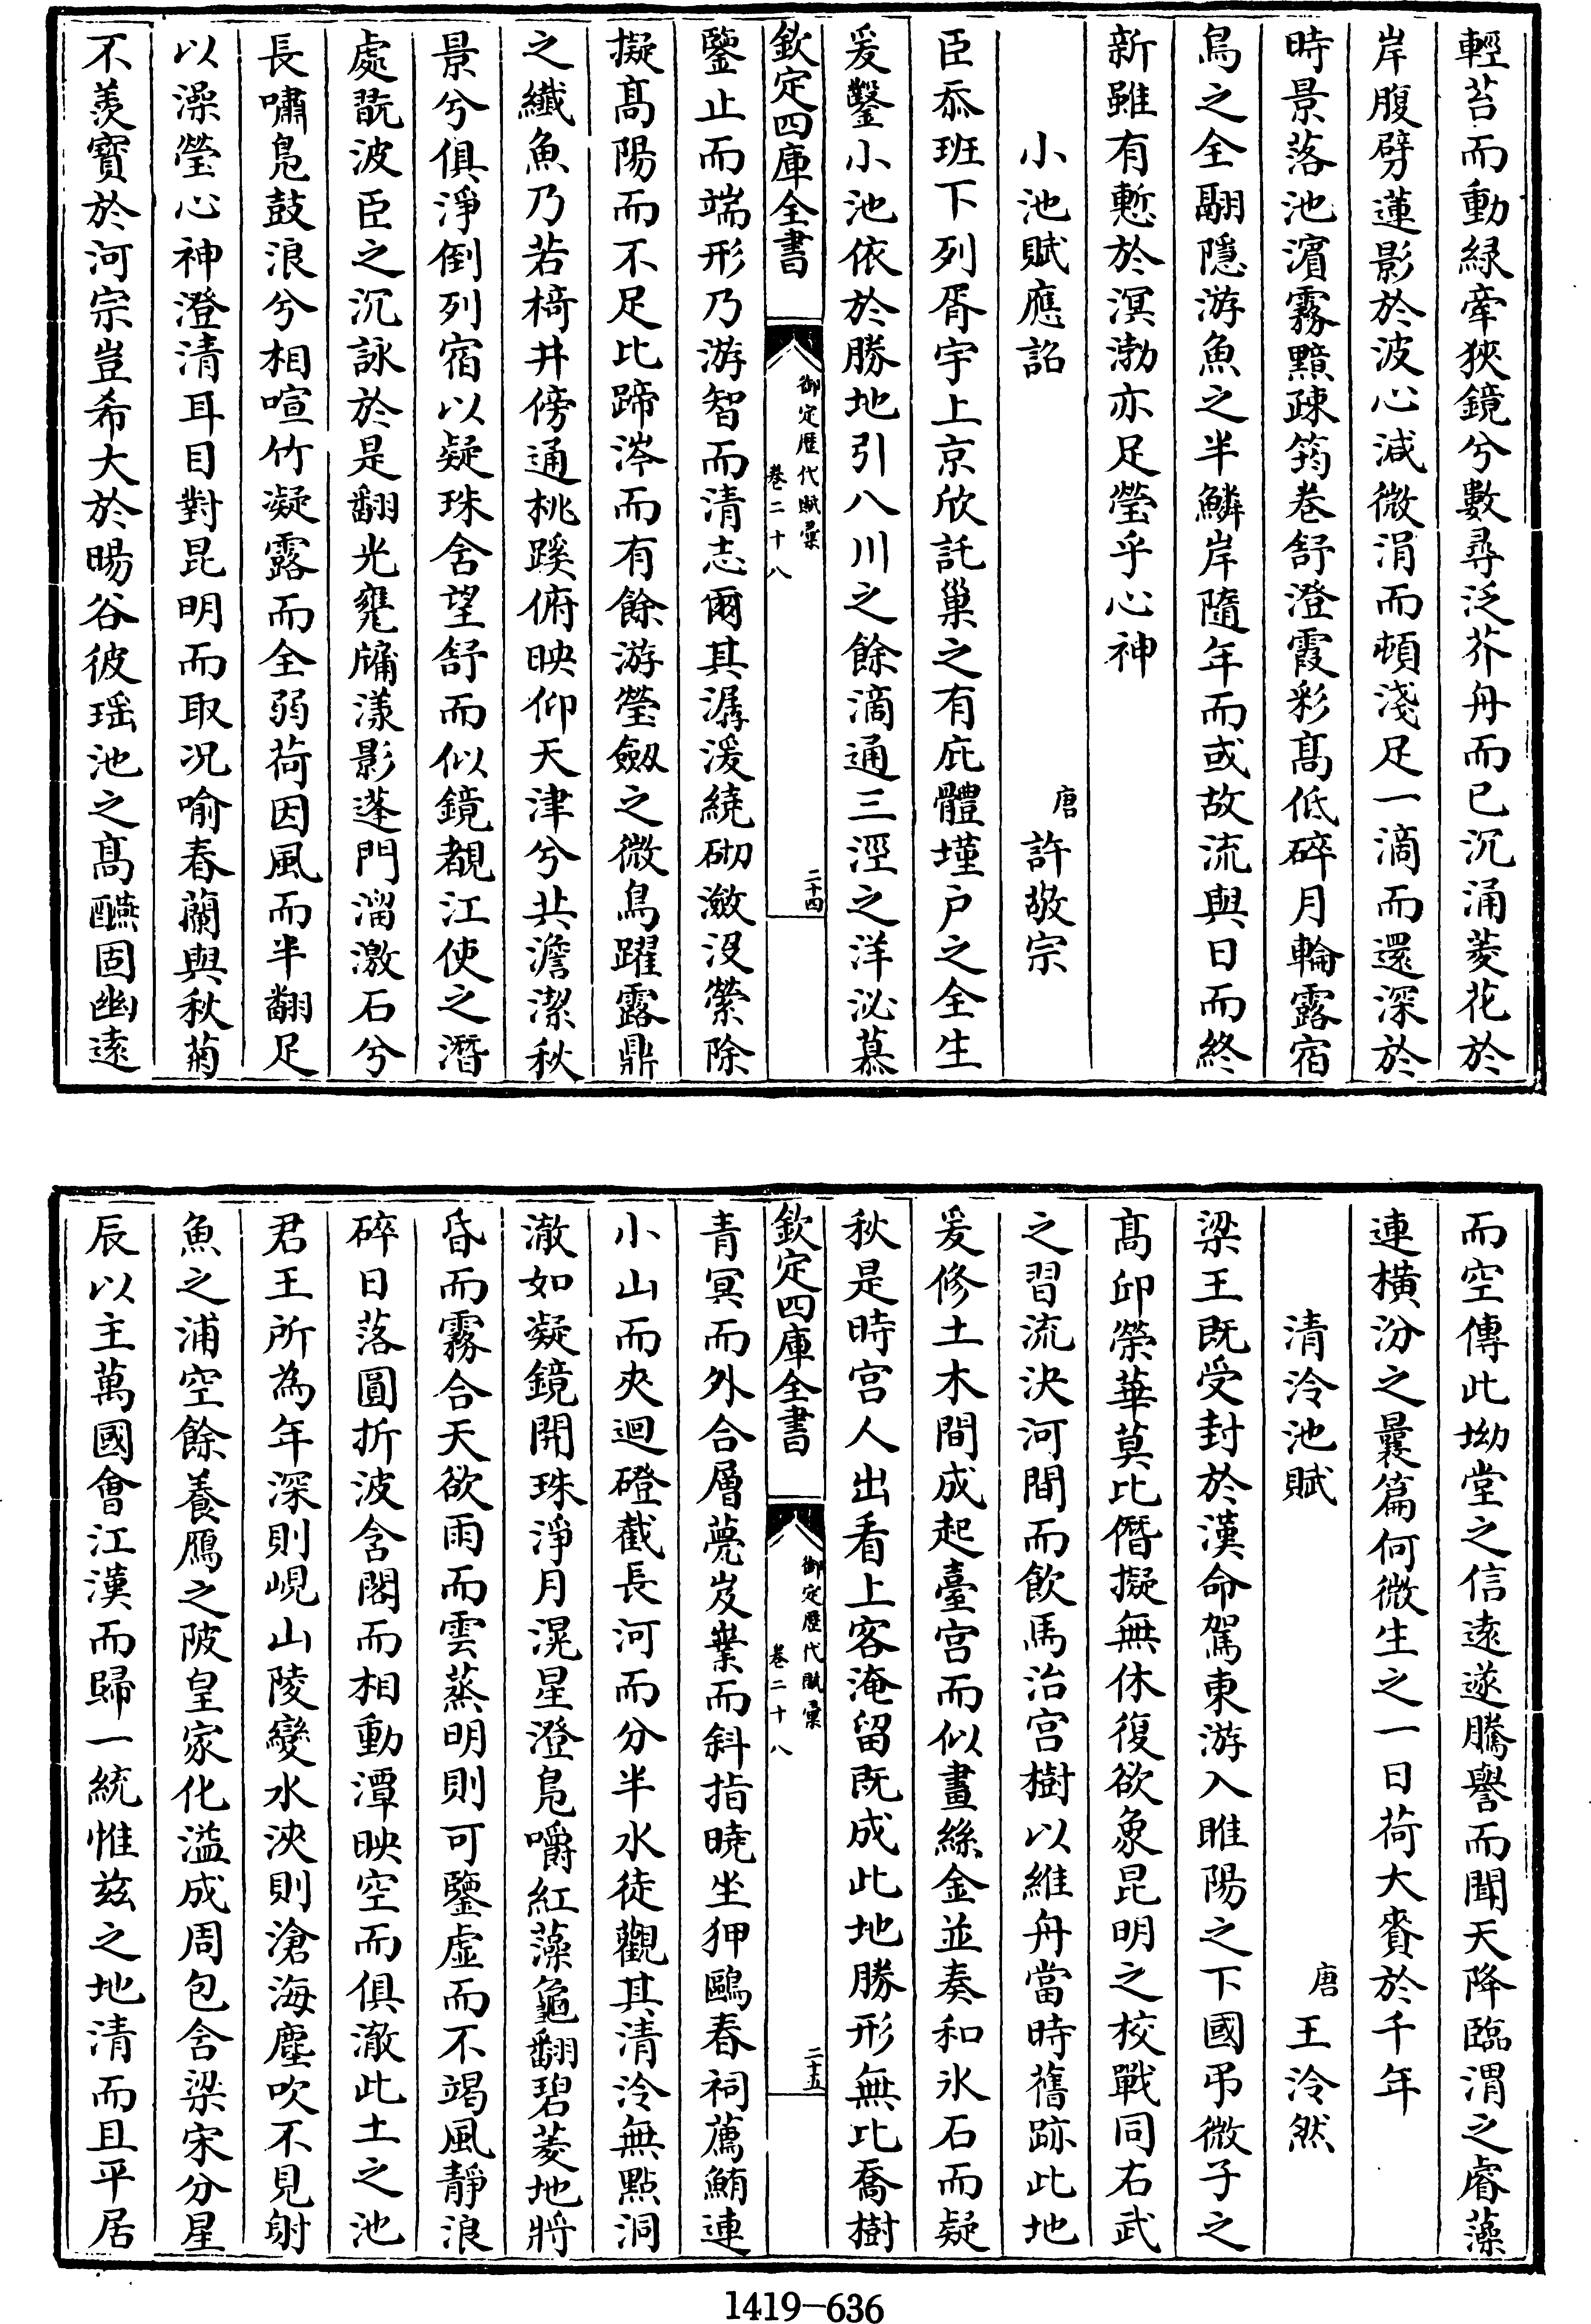 輕苔而動緑牽狹鏡兮數尋泛芥舟而已沉涌菱花於
岸腹劈蓮影於波心減微涓而頓淺足一滴而還深於
時景落池濱霧黯疎筠巻舒澄霞彩髙低碎月輪露宿
鳥之全翮隱游魚之半鱗岸隨年而或故流與日而終
新雖有慙於溟渤亦足瑩乎心神
小池賦應詔
唐許敬宗
臣忝班下列胥宇上京欣託巢之有庇體墐户之全生
爰鑿小池依於勝地引八川之餘滴通三涇之洋泌慕
欽定四庫全書
御定歴代賦彙
卷二十八
二十四
鑒止而端形乃游智而清志爾其潺湲繞砌瀲沒縈除
擬髙陽而不足比蹄涔而有餘游瑩劔之微鳥躍露鼎
之纖魚乃若椅井傍通桃蹊俯映仰天津兮共澹潔秋
景兮俱淨倒列宿以疑珠含望舒而似鏡覩江使之潛
處翫波臣之沉詠於是翻光甕牖漾影蓬門溜激石兮
長嘯鳬鼓浪兮相喧竹凝露而全弱荷因風而半翻足
以澡瑩心神澄清耳目對昆明而取况喻春蘭與秋菊
不羨寳於河宗豈希大於暘谷彼瑶池之髙醼固幽遠
而空傳此坳堂之信遠遂騰譽而聞天降臨渭之睿藻
連橫汾之曩篇何微生之一日荷大賚於千年
清泠池賦
唐王泠然
梁王既受封於漢命駕東游入睢陽之下國弔微子之
髙邱榮華莫比僭擬無休復欲象昆明之校戰同右武
之習流決河間而飲馬治宫樹以維舟當時舊跡此地
爰修土木間成起臺宫而似畫絲金並奏和氷石而疑
秋是時宫人出看上客淹留既成此地勝形無比喬樹
欽定四庫全書
御定歴代賦彙
卷二十八
二十五
青冥而外合層甍岌嶪而斜指曉坐狎鷗春祠薦鮪連
小山而夾迴磴截長河而分半水徒觀其清泠無點洞
澈如凝鏡開珠淨月滉星澄鳬嚼紅藻龜翻碧菱地將
昏而霧合天欲雨而雲蒸明則可鑒虚而不竭風靜浪
碎日落圓折波含閣而相動潭映空而俱澈此土之池
君王所為年深則峴山陵變水浹則滄海塵吹不見射
魚之浦空餘養鴈之陂皇家化溢成周包含梁宋分星
辰以主萬國會江漢而歸一統惟兹之地清而且平居
1419-636